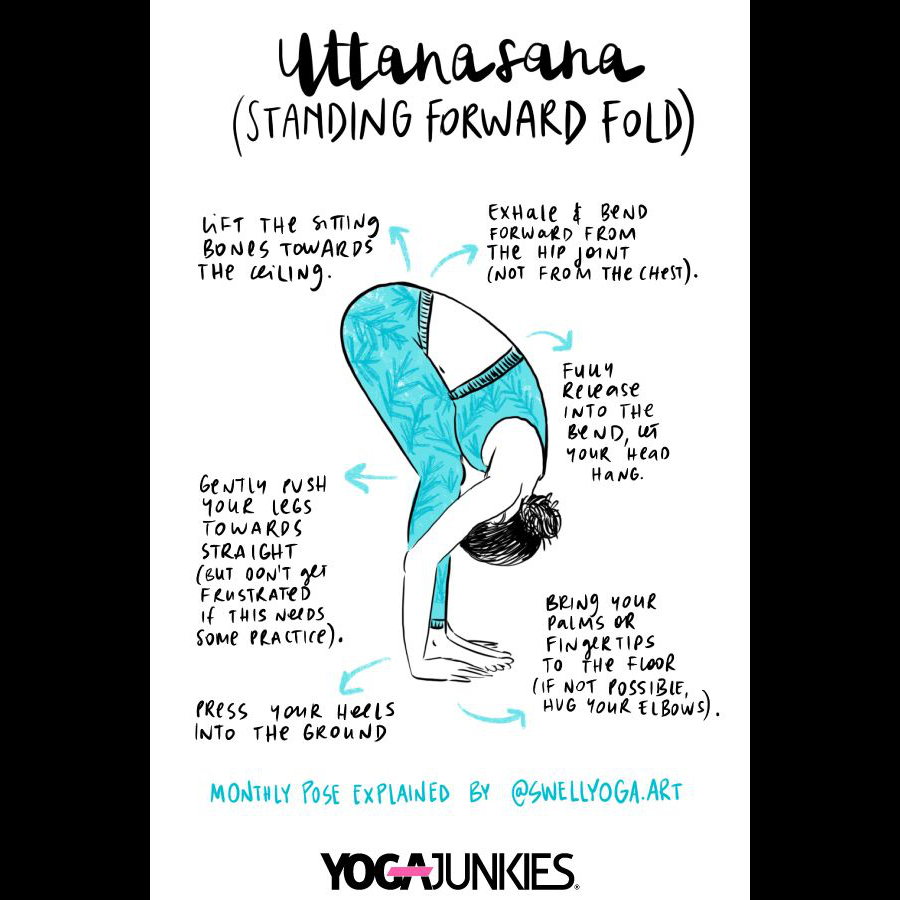 Uttanasana
(STANDING FORWARD FOLD)
LIFT THE SITTING
BONES TOWARDS
THE CEILING.
EXHALE & BEND
FORWARD FROM
THE HIP JOINT
(NOT FROM THE CHEST).
FULLY
RELEASE
INTO THE
BEND, LET
YOUR HEAD
HANG.
GENTLY PUSH
YOUR LEGS
TOWARDS
STRAIGHT
(BUT DON'T GET
FRUSTRATED
IF THIS NEEDS
SOME PRACTICE).
BRING YOUR
PALMS OR
FINGERTIPS
TO THE FLOOR
(IF NOT POSSIBLE,
HUG YOUR ELBOWS).
PRESS YOUR HEELS
INTO THE GROUND
MONTHLY POSE EXPLAINED BY @SWELLYOGA.ART
YOGAJUNKIES®